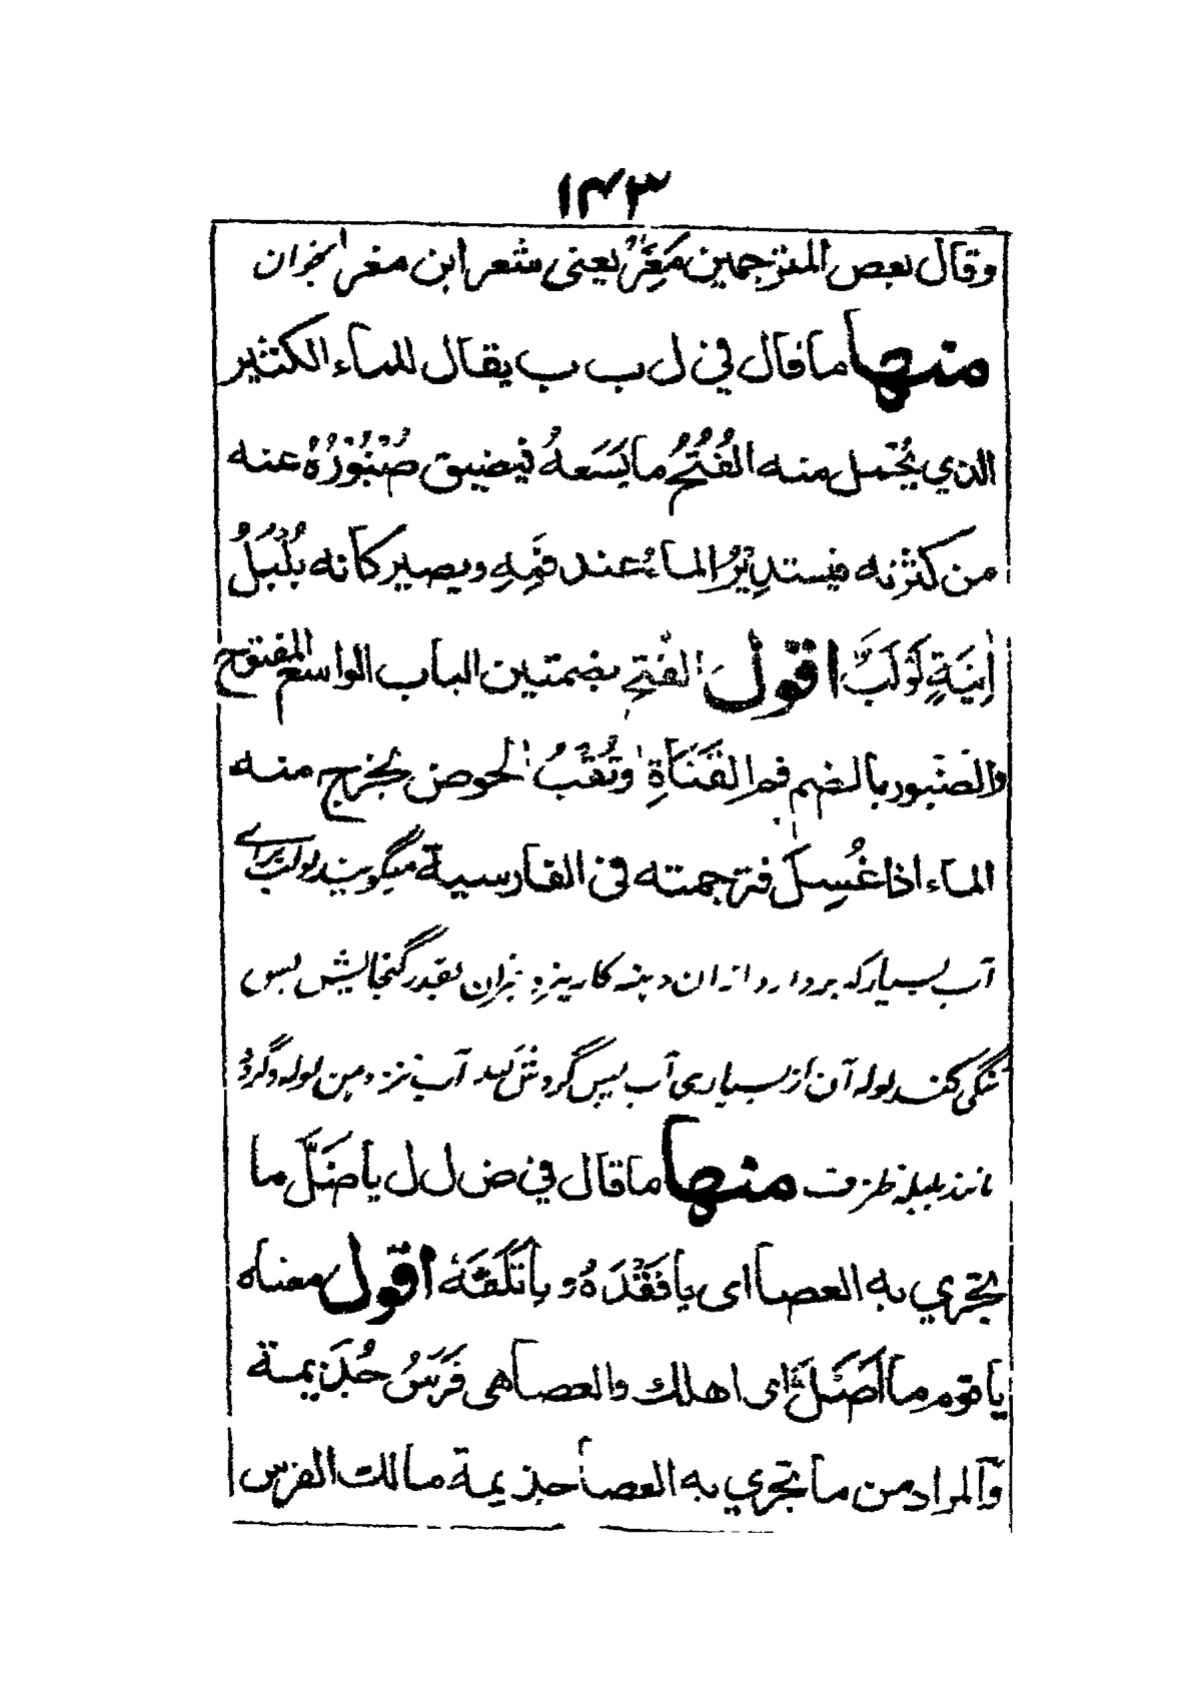 ۱۴۳
وقال بعض المترجمين مَغِّرْ يعنى شعر ابن مغرا بخوان
منها ما قال في ل ب ب يقال للماء الكثير
الذي يحمل منه الفُتُحُ ما يَسَعهُ فيضيق صُنْبُوْرُهُ عنه
من كثرته فيستدِيْرُ الماءُ عند فَمِهِ ويصير كانه بُلْبُلُ
اٰنِيَةٍ لَوْلَبٌ اقول الفُتُح بضمتين الباب الواسع المفتوح
والصنبور بالضم فم القَنَاةِ وثُقْبُ الحوض يخرج منه
الماء اذا غُسِلَ فترجمته فى الفارسية ميگويند لولب براے
آب بسيار كه بردارد ازان دهنه كاريز و جزآن بقدر گنجايش پس
تنگى كند لوله آن از بسيارى آب پس گردش كند آب نزد دهن لوله و گردد
مانند بلبله ظرف منها ما قال في ض ل ل يا ضَلَّ ما
تجري به العصا اى يا فَقْدَهُ و يا تَلَفَهُ اقول معناه
يا قوم ما اَضَلَّ اى اهلك والعصا هى فَرَسُ جُذَيمة
والمراد من ما تجري به العصا جذيمة مالك الفرس